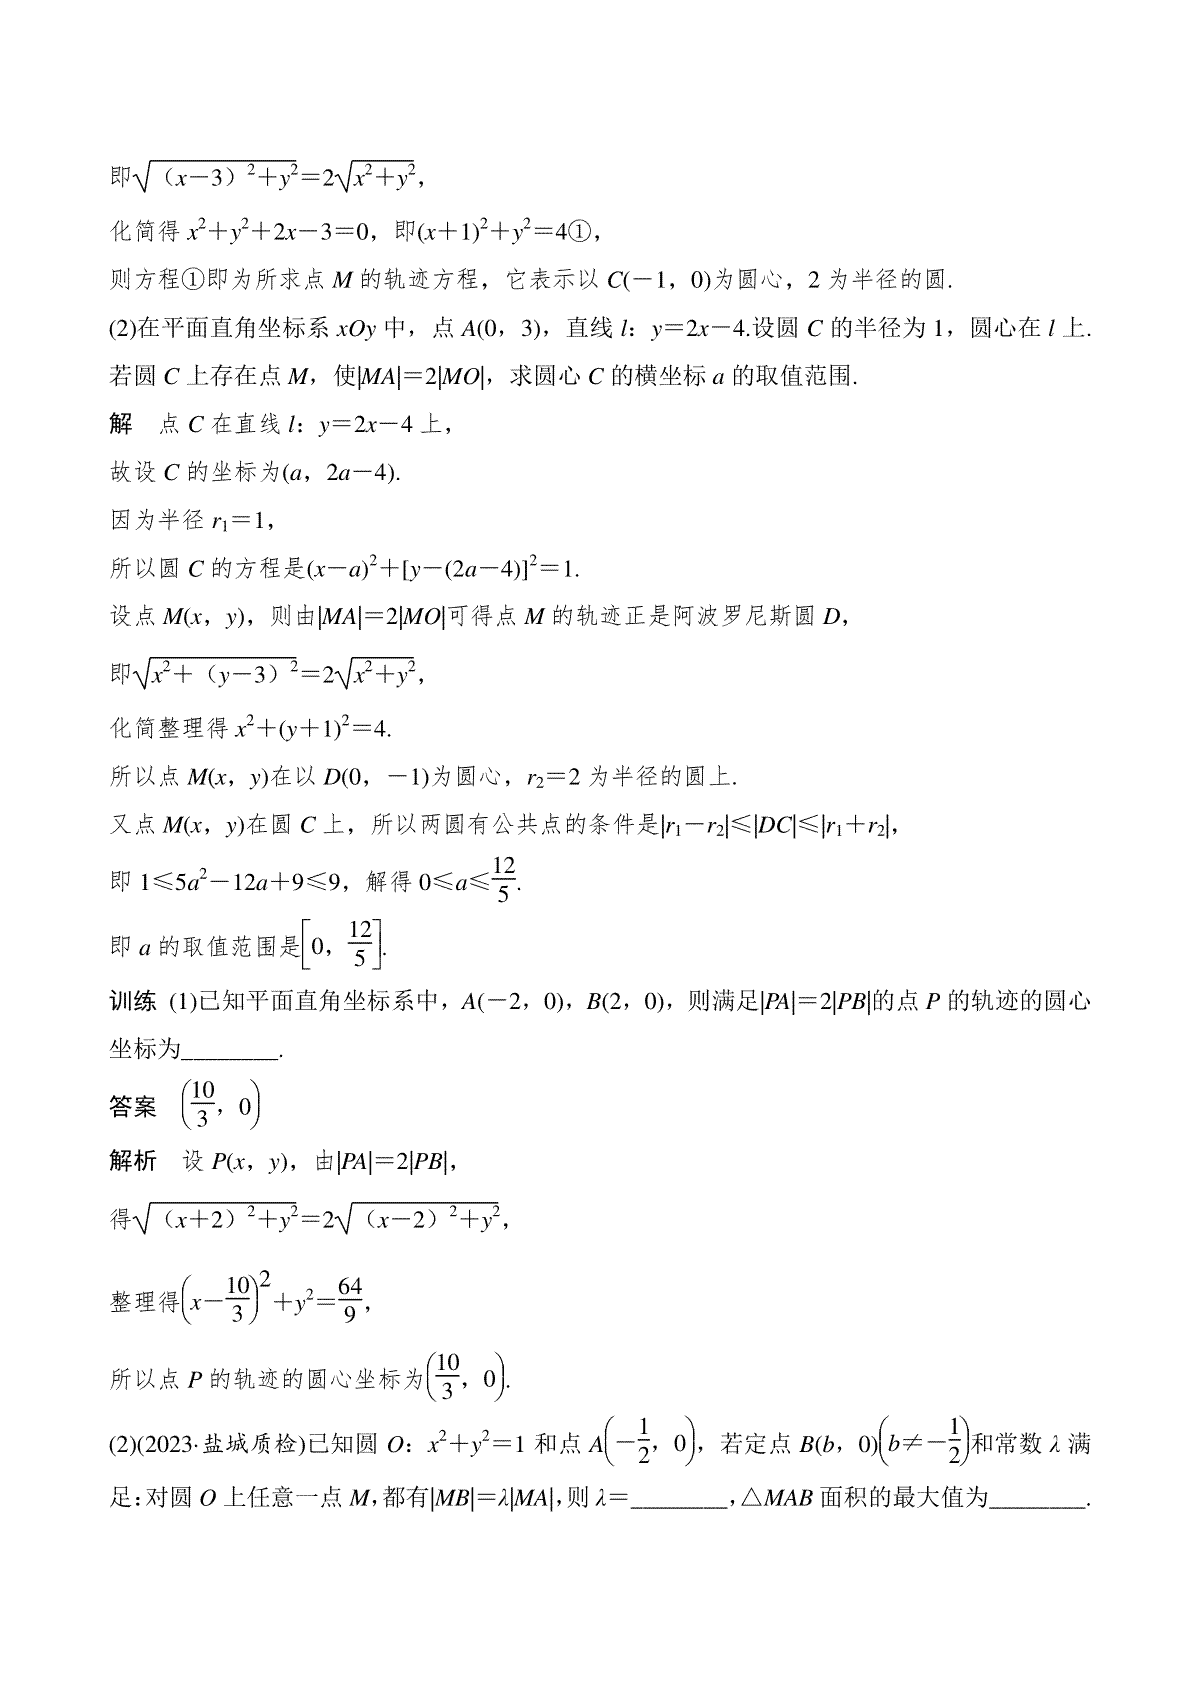 即√（x－3）²＋y²＝2√x²＋y²，
化简得 x²＋y²＋2x－3＝0，即(x＋1)²＋y²＝4①，
则方程①即为所求点 M 的轨迹方程，它表示以 C(－1，0)为圆心，2 为半径的圆.
(2)在平面直角坐标系 xOy 中，点 A(0，3)，直线 l：y＝2x－4.设圆 C 的半径为 1，圆心在 l 上.
若圆 C 上存在点 M，使|MA|＝2|MO|，求圆心 C 的横坐标 a 的取值范围.
解　点 C 在直线 l：y＝2x－4 上，
故设 C 的坐标为(a，2a－4).
因为半径 r₁＝1，
所以圆 C 的方程是(x－a)²＋[y－(2a－4)]²＝1.
设点 M(x，y)，则由|MA|＝2|MO|可得点 M 的轨迹正是阿波罗尼斯圆 D，
即√x²＋（y－3）²＝2√x²＋y²，
化简整理得 x²＋(y＋1)²＝4.
所以点 M(x，y)在以 D(0，－1)为圆心，r₂＝2 为半径的圆上.
又点 M(x，y)在圆 C 上，所以两圆有公共点的条件是|r₁－r₂|≤|DC|≤|r₁＋r₂|，
即 1≤5a²－12a＋9≤9，解得 0≤a≤12/5.
即 a 的取值范围是[0，12/5].
训练 (1)已知平面直角坐标系中，A(－2，0)，B(2，0)，则满足|PA|＝2|PB|的点 P 的轨迹的圆心
坐标为________.
答案　(10/3，0)
解析　设 P(x，y)，由|PA|＝2|PB|，
得√（x＋2）²＋y²＝2√（x－2）²＋y²，
整理得(x－10/3)²＋y²＝64/9，
所以点 P 的轨迹的圆心坐标为(10/3，0).
(2)(2023·盐城质检)已知圆 O：x²＋y²＝1 和点 A(－1/2，0)，若定点 B(b，0)(b≠－1/2)和常数 λ 满
足：对圆 O 上任意一点 M，都有|MB|＝λ|MA|，则 λ＝________，△MAB 面积的最大值为________.